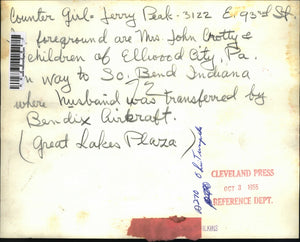 Counter Girl - Jerry Peak - 3122 E. 93rd St.
foreground are Mrs. John Crotty &
children of Ellwood City, Pa.
on way to So. Bend Indiana
where husband was transferred by
Bendix Aircraft.
(Great Lakes Plaza)
CLEVELAND PRESS
OCT 3 1955
REFERENCE DEPT.